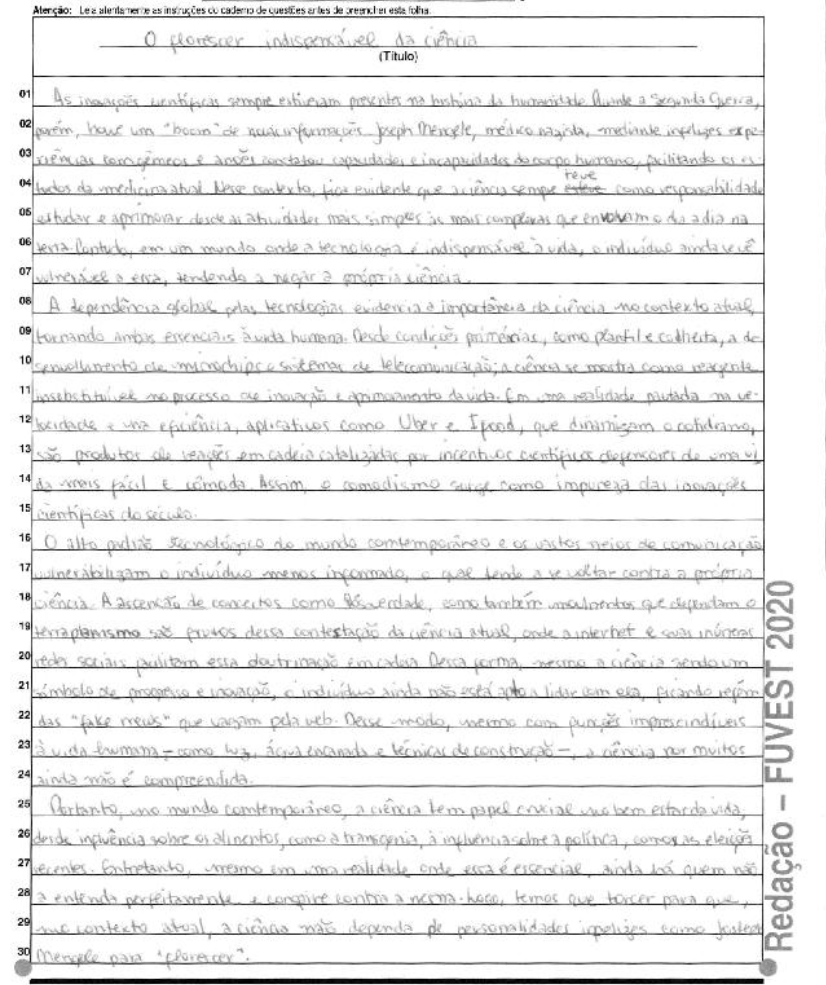 Atenção: Leia atentamente as instruções do caderno de questões antes de preencher esta folha.
O florescer indispensável da ciência
(Título)
01 As inovações científicas sempre estiveram presentes na história da humanidade. Durante a Segunda Guerra,
02 porém, houve um "boom" de novas informações. Joseph Mengele, médico nazista, mediante infelizes expe-
03 riências com gêmeos e anões constatou capacidades e incapacidades do corpo humano, facilitando os es-
04 tudos da medicina atual. Nesse contexto, fica evidente que a ciência sempre teve como responsabilidade
05 estudar e aprimorar desde as atividades mais simples às mais complexas que envolvam o dia a dia na
06 terra. Contudo, em um mundo onde a tecnologia é indispensável à vida, o indivíduo ainda se vê
07 vulnerável a essa, tendendo a negar a própria ciência.
08 A dependência global pelas tecnologias evidencia a importância da ciência no contexto atual,
09 tornando ambas essenciais à vida humana. Desde condições primárias, como plantil e colheita, a de
10 senvollamento de microchips e sistemas de telecomunicação, a ciência se mostra como reagente
11 insubstituível no processo de inovação e aprimoramento da vida. Em uma realidade pautada na ve-
12 locidade e una eficiência, aplicativos como Uber e Ifood, que dinamizam o cotidiano,
13 são produtos de reações em cadeia catalizadas por incentivos científicos defensores de uma vi
14 da mais fácil e cômoda. Assim, o comodismo surge como impureza das inovações
15 científicas do século.
16 O alto padrão tecnológico do mundo comtemporâneo e os vastos meios de comunicação
17 vulnerabilizam o indivíduo menos informado, o qual tende a se voltar contra a própria
18 ciência. A ascensão de conceitos como Pós-verdade, como também movimentos que defendam o
19 terraplanismo são frutos dessa contestação da ciência atual, onde a internet e suas inúmeras
20 redes sociais facilitam essa doutrinação em cadeia. Dessa forma, mesmo a ciência sendo um
21 símbolo de progresso e inovação, o indivíduo ainda não está apto a lidar com ela, ficando refém
22 das "fake news" que vagam pela web. Desse modo, mesmo com funções imprescindíveis
23 à vida humana – como luz, água encanada e técnicas de construção –, a ciência por muitos
24 ainda não é compreendida.
25 Portanto, no mundo comtemporâneo, a ciência tem papel crucial no bem estar da vida,
26 desde influência sobre os alimentos, como a transgenia, à influência sobre a política, como as eleições
27 recentes. Entretanto, mesmo em uma realidade onde essa é essencial, ainda há quem não
28 a entenda perfeitamente e conspire contra a mesma. Logo, temos que torcer para que,
29 no contexto atual, a ciência não dependa de personalidades infelizes como Joseph
30 Mengele para "florescer".
Redação – FUVEST 2020